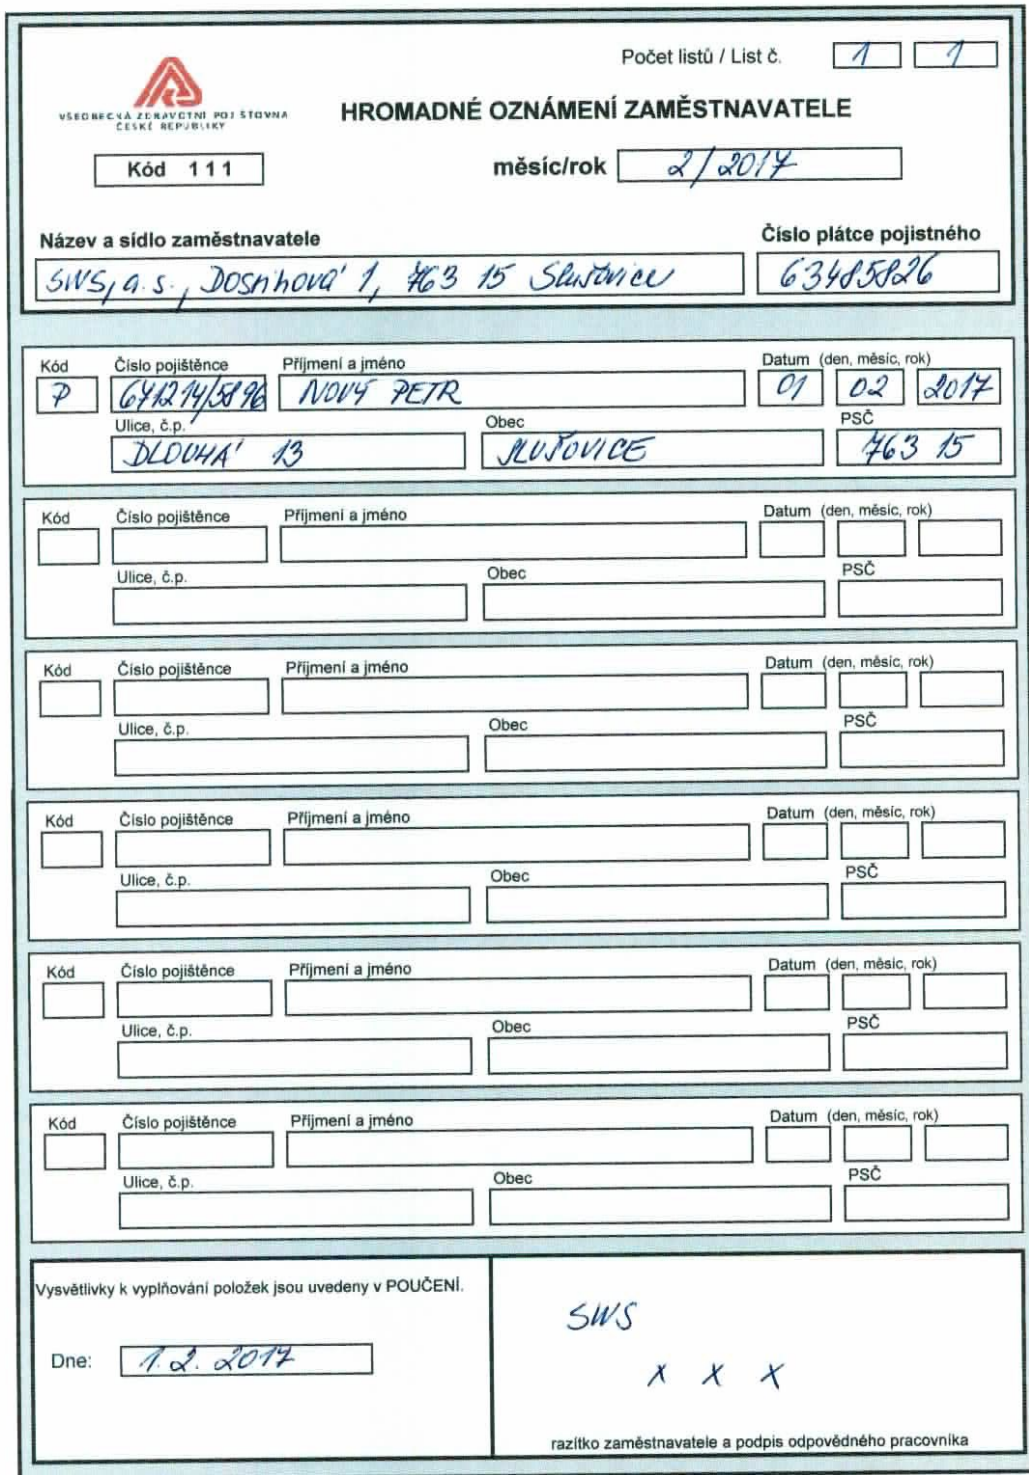 Počet listů / List č. 1 1
VŠEOBECNÁ ZDRAVOTNÍ POJIŠŤOVNA
ČESKÉ REPUBLIKY
HROMADNÉ OZNÁMENÍ ZAMĚSTNAVATELE
Kód 111
měsíc/rok 2/2017
Název a sídlo zaměstnavatele Číslo plátce pojistného
SWS, a.s., 1, 763 15 Slušovice 63485826
Kód Číslo pojištěnce Příjmení a jméno Datum (den, měsíc, rok)
P 671214/5896 NOVÝ PETR 01 02 2017
Ulice, č.p. Obec PSČ
DLOUHÁ 13 SLUŠOVICE 763 15
Kód Číslo pojištěnce Příjmení a jméno Datum (den, měsíc, rok)
Ulice, č.p. Obec PSČ
Kód Číslo pojištěnce Příjmení a jméno Datum (den, měsíc, rok)
Ulice, č.p. Obec PSČ
Kód Číslo pojištěnce Příjmení a jméno Datum (den, měsíc, rok)
Ulice, č.p. Obec PSČ
Kód Číslo pojištěnce Příjmení a jméno Datum (den, měsíc, rok)
Ulice, č.p. Obec PSČ
Kód Číslo pojištěnce Příjmení a jméno Datum (den, měsíc, rok)
Ulice, č.p. Obec PSČ
Vysvětlivky k vyplňování položek jsou uvedeny v POUČENÍ.
SWS
Dne: 1.2.2017
x x x
razítko zaměstnavatele a podpis odpovědného pracovníka